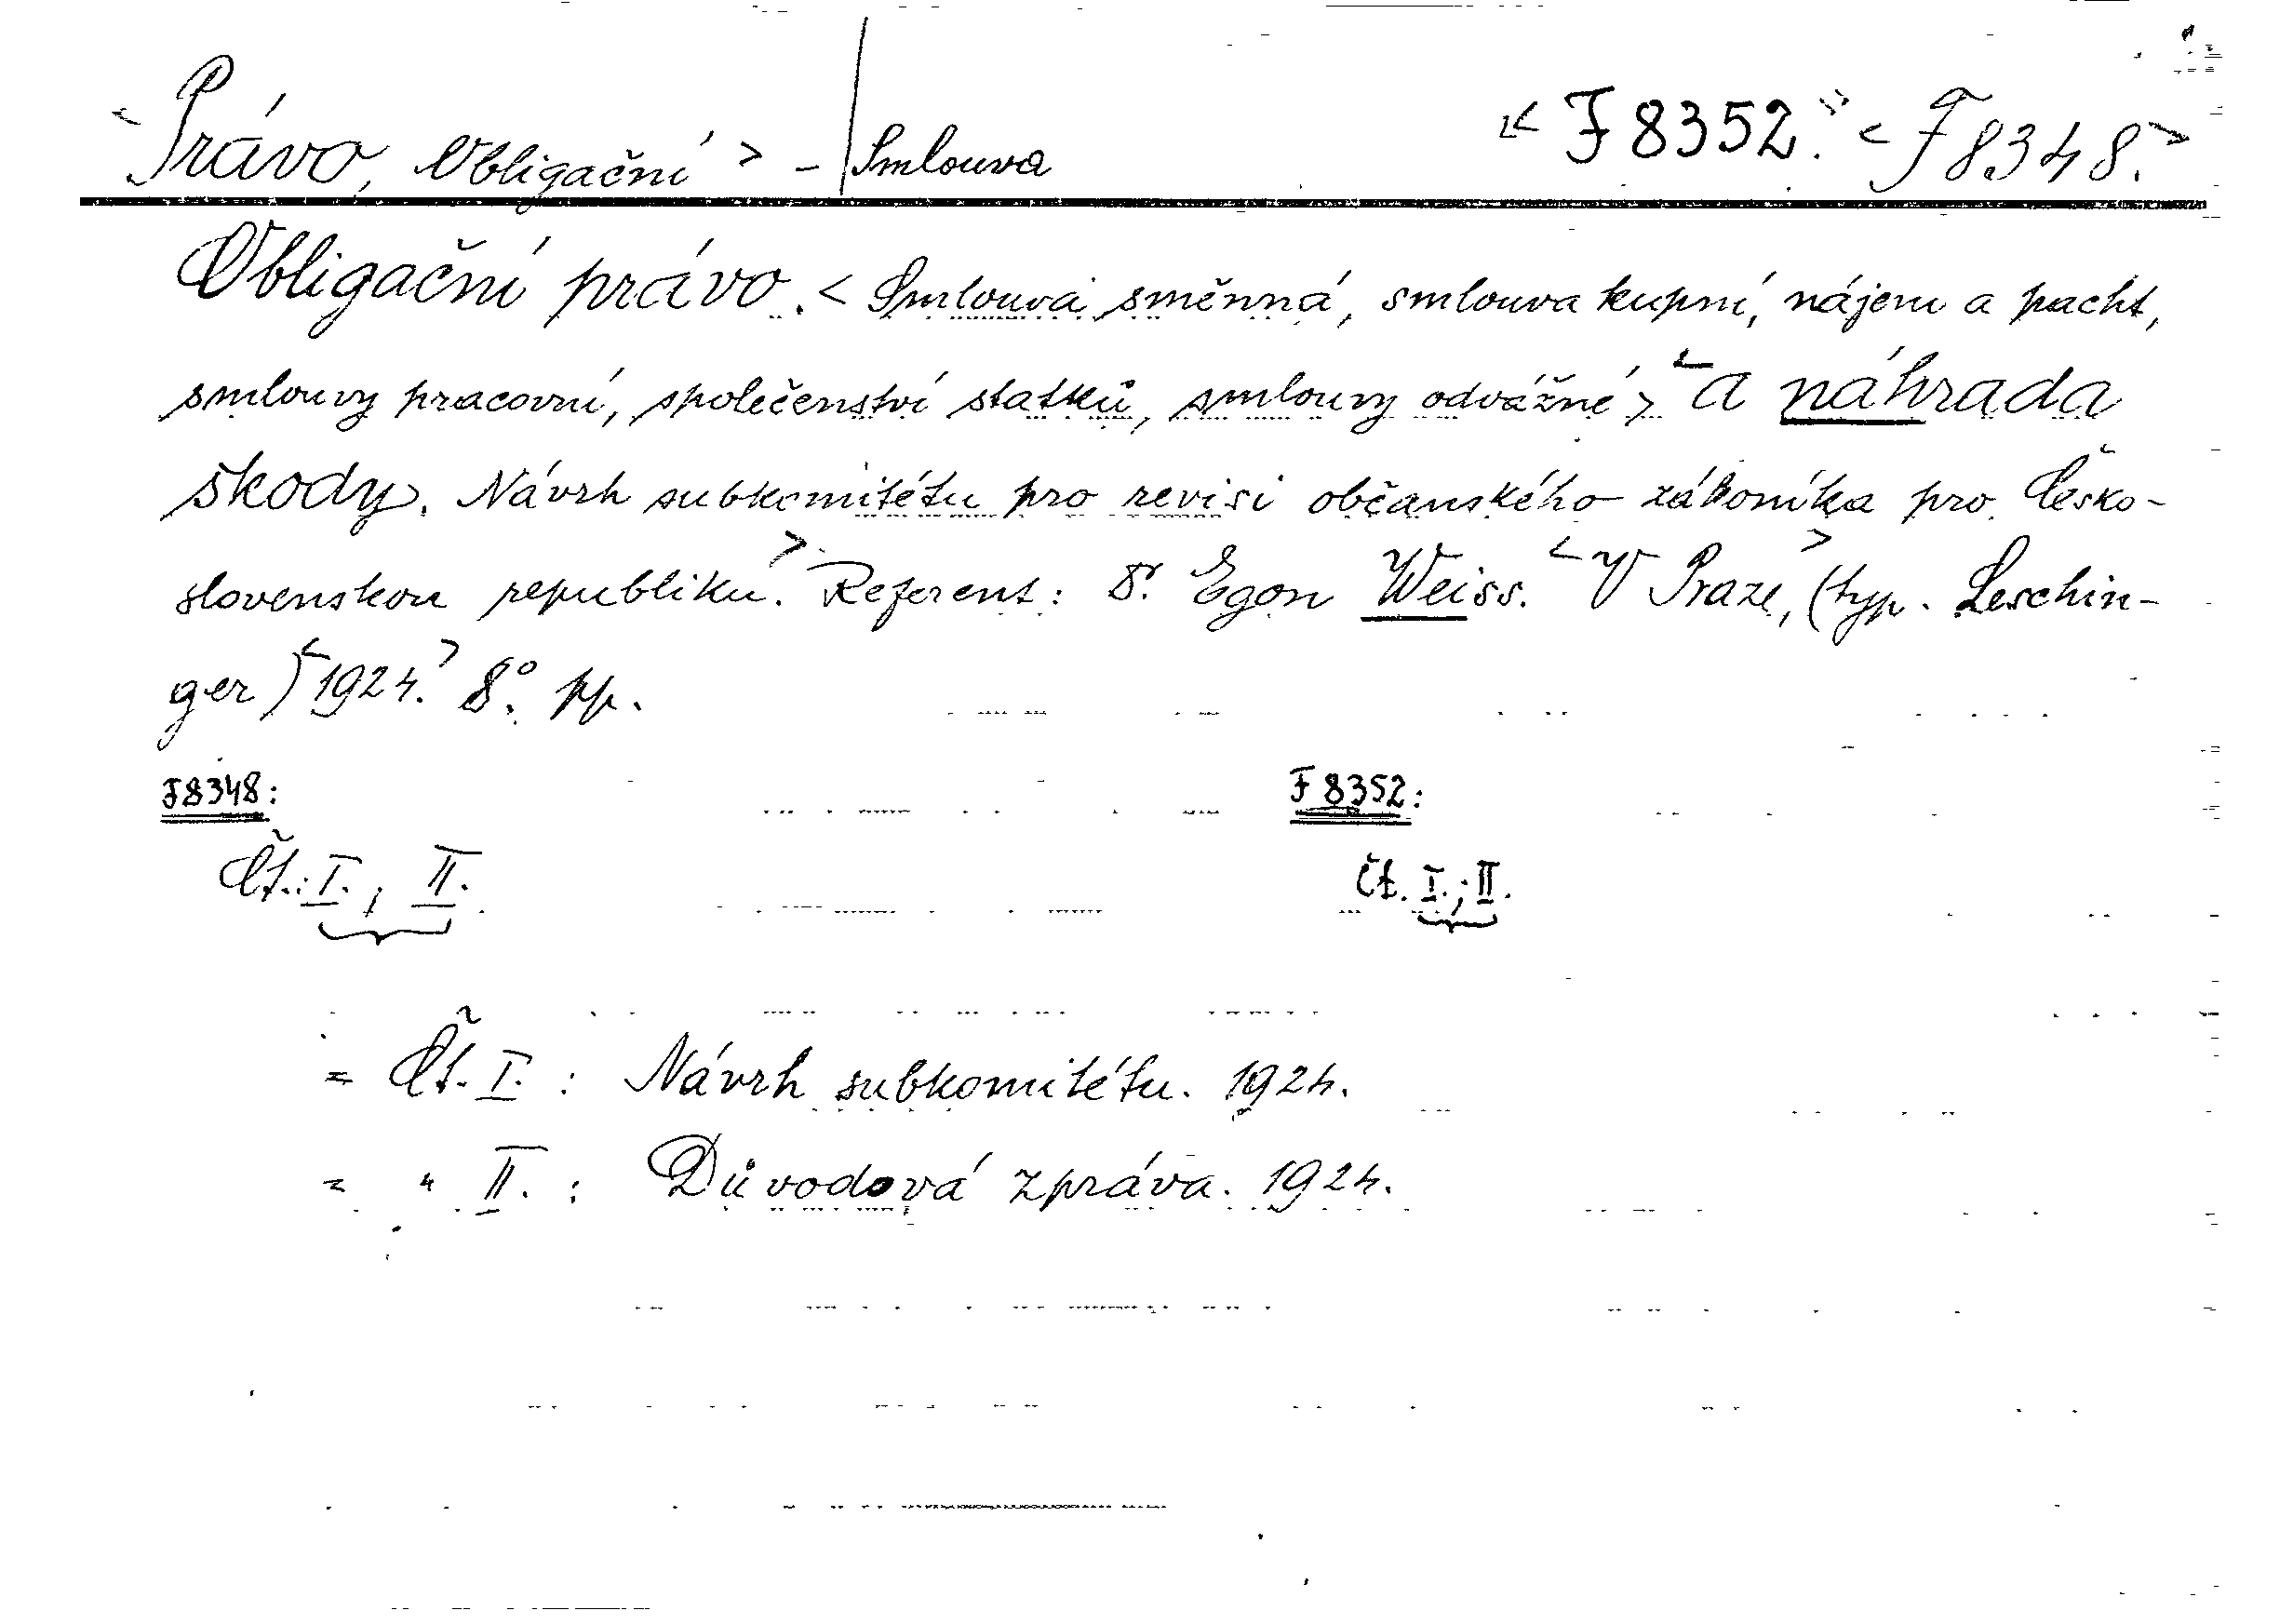 <Právo, Obligační> - | Smlouva «F 8352.» <F 8348.>
Obligační právo. <Smlouva směnná, smlouva kupní, nájem a pacht,
smlouvy pracovní, společenství statků, smlouvy odvážné> <a náhrada
škody. Návrh subkomitétu pro revisi občanského zákoníka pro Česko-
slovenskou republiku.> Referent: Dr. Egon Weiss. <V Praze,> (typ. Leschin-
ger) <1924.> 8°. pp.
F8348: F 8352:
Čt.: I. ; II. Čt. I. ; II.
= Čt. I. : Návrh subkomitétu. 1924.
= " II. : Důvodová zpráva. 1924.